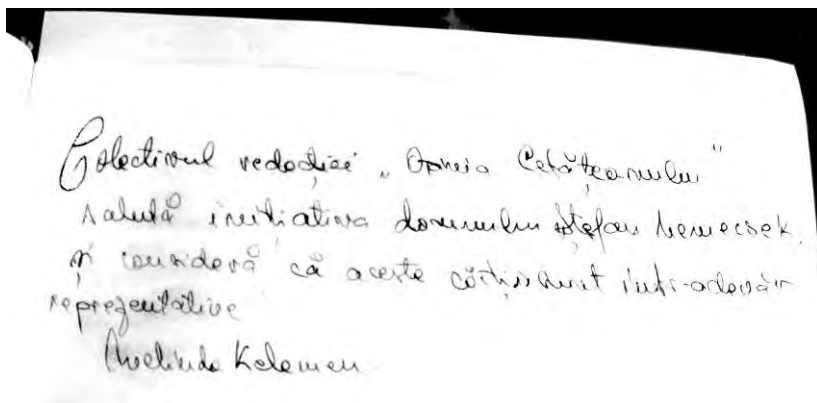 Colectivul redacției „Opinia Cetățeanului”
salută inițiativa domnului Ștefan Nemecsek
și consideră că aceste cărți sunt într-adevăr
reprezentative
Melinda Kelemen